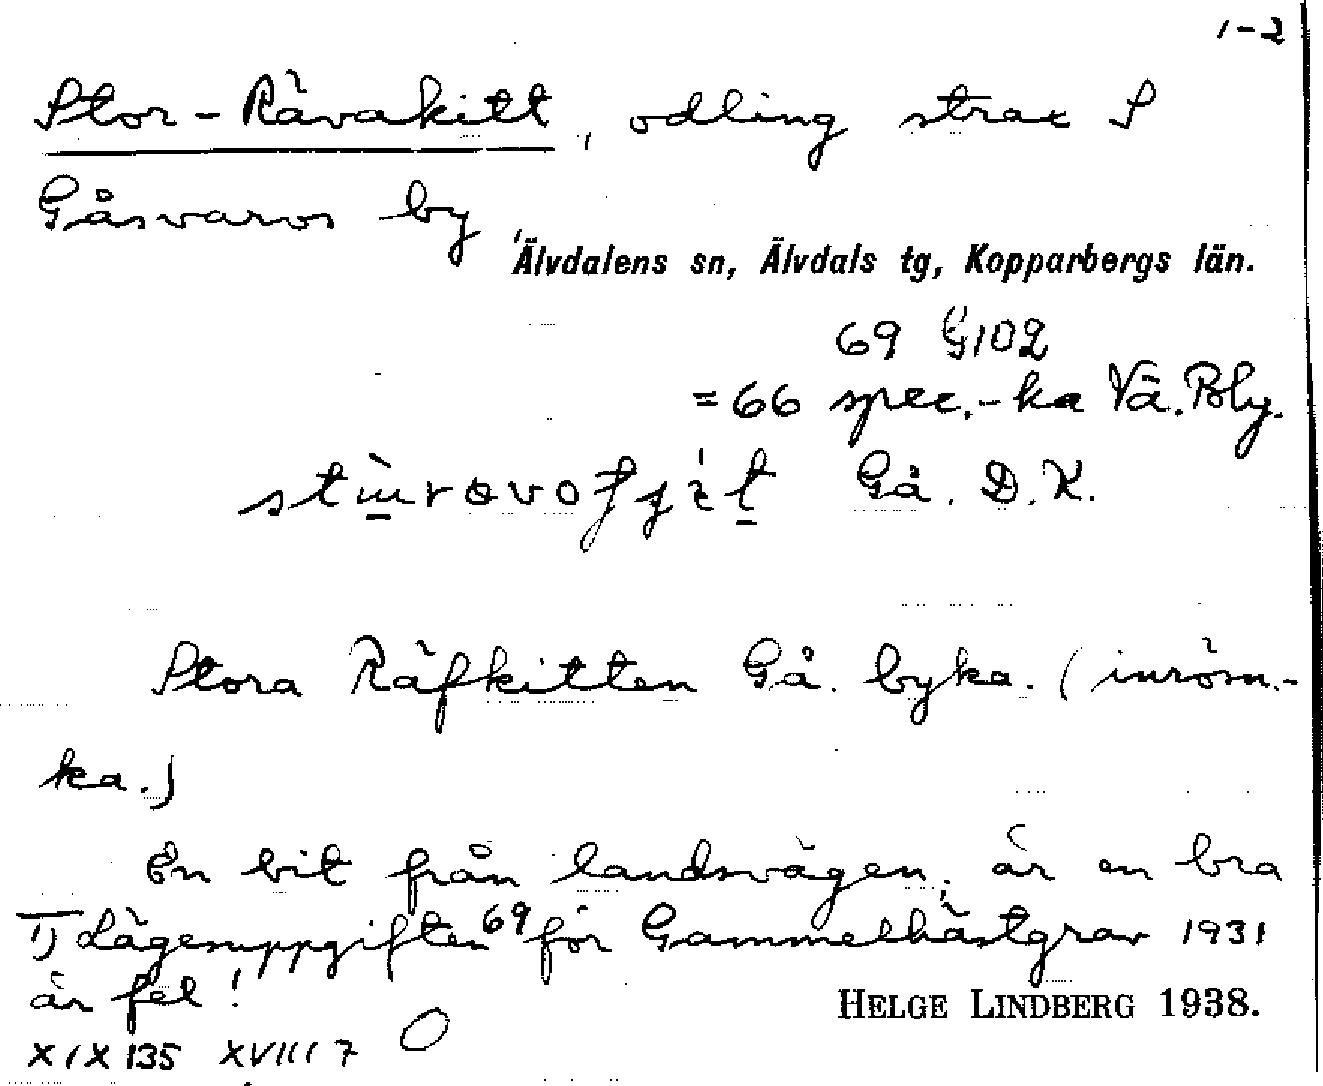 1-2
Stor-Rävakitt, odling strax S
Gåsvarvs by
Älvdalens sn, Älvdals tg, Kopparbergs län.
69 G102
= 66 spec.-ka Vä. Bly.
Gå. D.K.
Stora Räfkitten Gå. byka. (inröm.-
ka.)
En bit från landsvägen, är en bra
1) Lägesuppgiften 69 för Gammelhästgrav 1931
är fel!
HELGE LINDBERG 1938.
XIX 135 XVIII 7